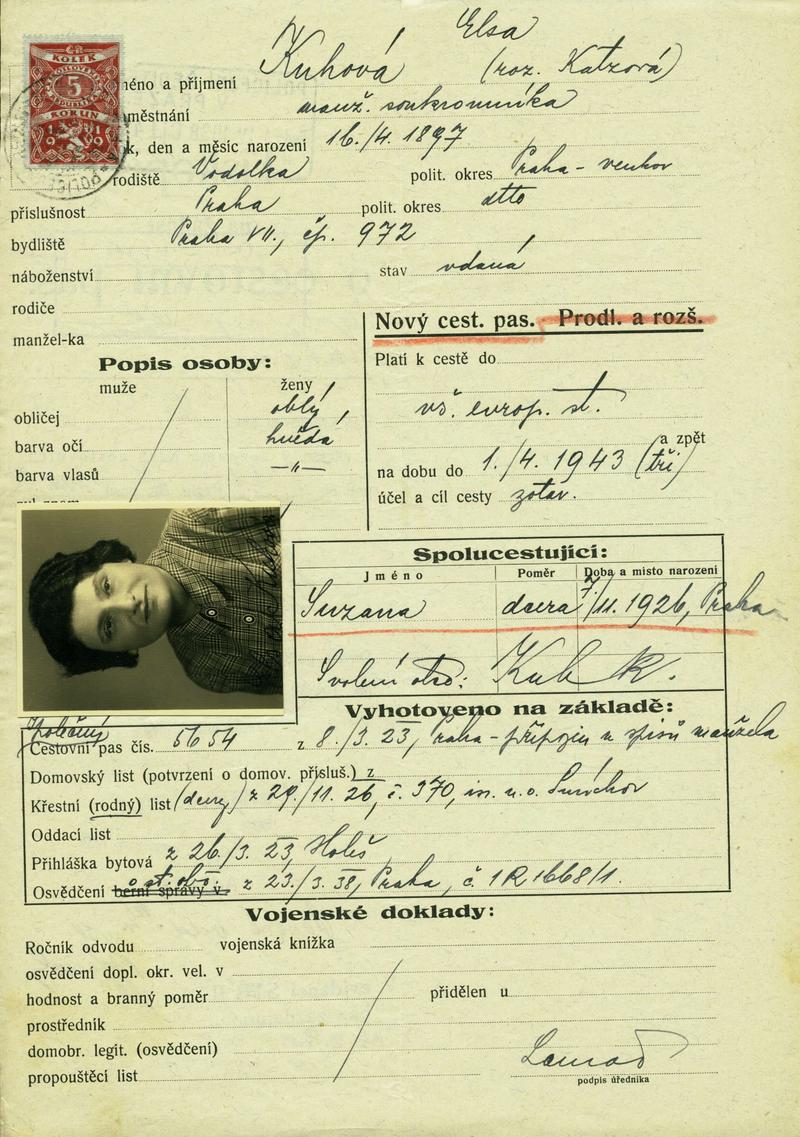 Elsa
Kuhová (roz. Katzová)
méno a příjmení
manž. soukromníka
městnání
k, den a měsíc narození 16./4. 1897
rodiště Vodolka polit. okres Praha - venkov
příslušnost Praha polit. okres dtto
bydliště Praha VII., čp. 972
náboženství stav vdaná
rodiče
manžel-ka
Nový cest. pas. - Prodl. a rozš.
Platí k cestě do
vš. evrop. st.
a zpět
na dobu do 1./4. 1943 (tři)
účel a cíl cesty zotav.
Popis osoby:
muže ženy
obličej oblý
barva očí hnědá
barva vlasů —„—
Spolucestující:
Jméno Poměr Doba a místo narození
Suzana dcera 7./11. 1926, Praha
Svolení otce: Kuh
Vyhotoveno na základě:
Společný
Cestovní pas čís. 5654 z 8./3. 23, Praha - připojen u spisů manžela
Domovský list (potvrzení o domov. přísluš.) z
Křestní (rodný) list (dcery) z 29./11. 26, č. 370, is. n. o. Smíchov
Oddací list
Přihláška bytová z 26./3. 23, Holeš
o st. obč.
Osvědčení berní správy v z 23./3. 38, Praha, č. 1R1668/1.
Vojenské doklady:
Ročník odvodu vojenská knížka
osvědčení dopl. okr. vel. v
hodnost a branný poměr přidělen u
prostředník
domobr. legit. (osvědčení)
propouštěcí list
podpis úředníka
KOLEK
5
KORUN
1919